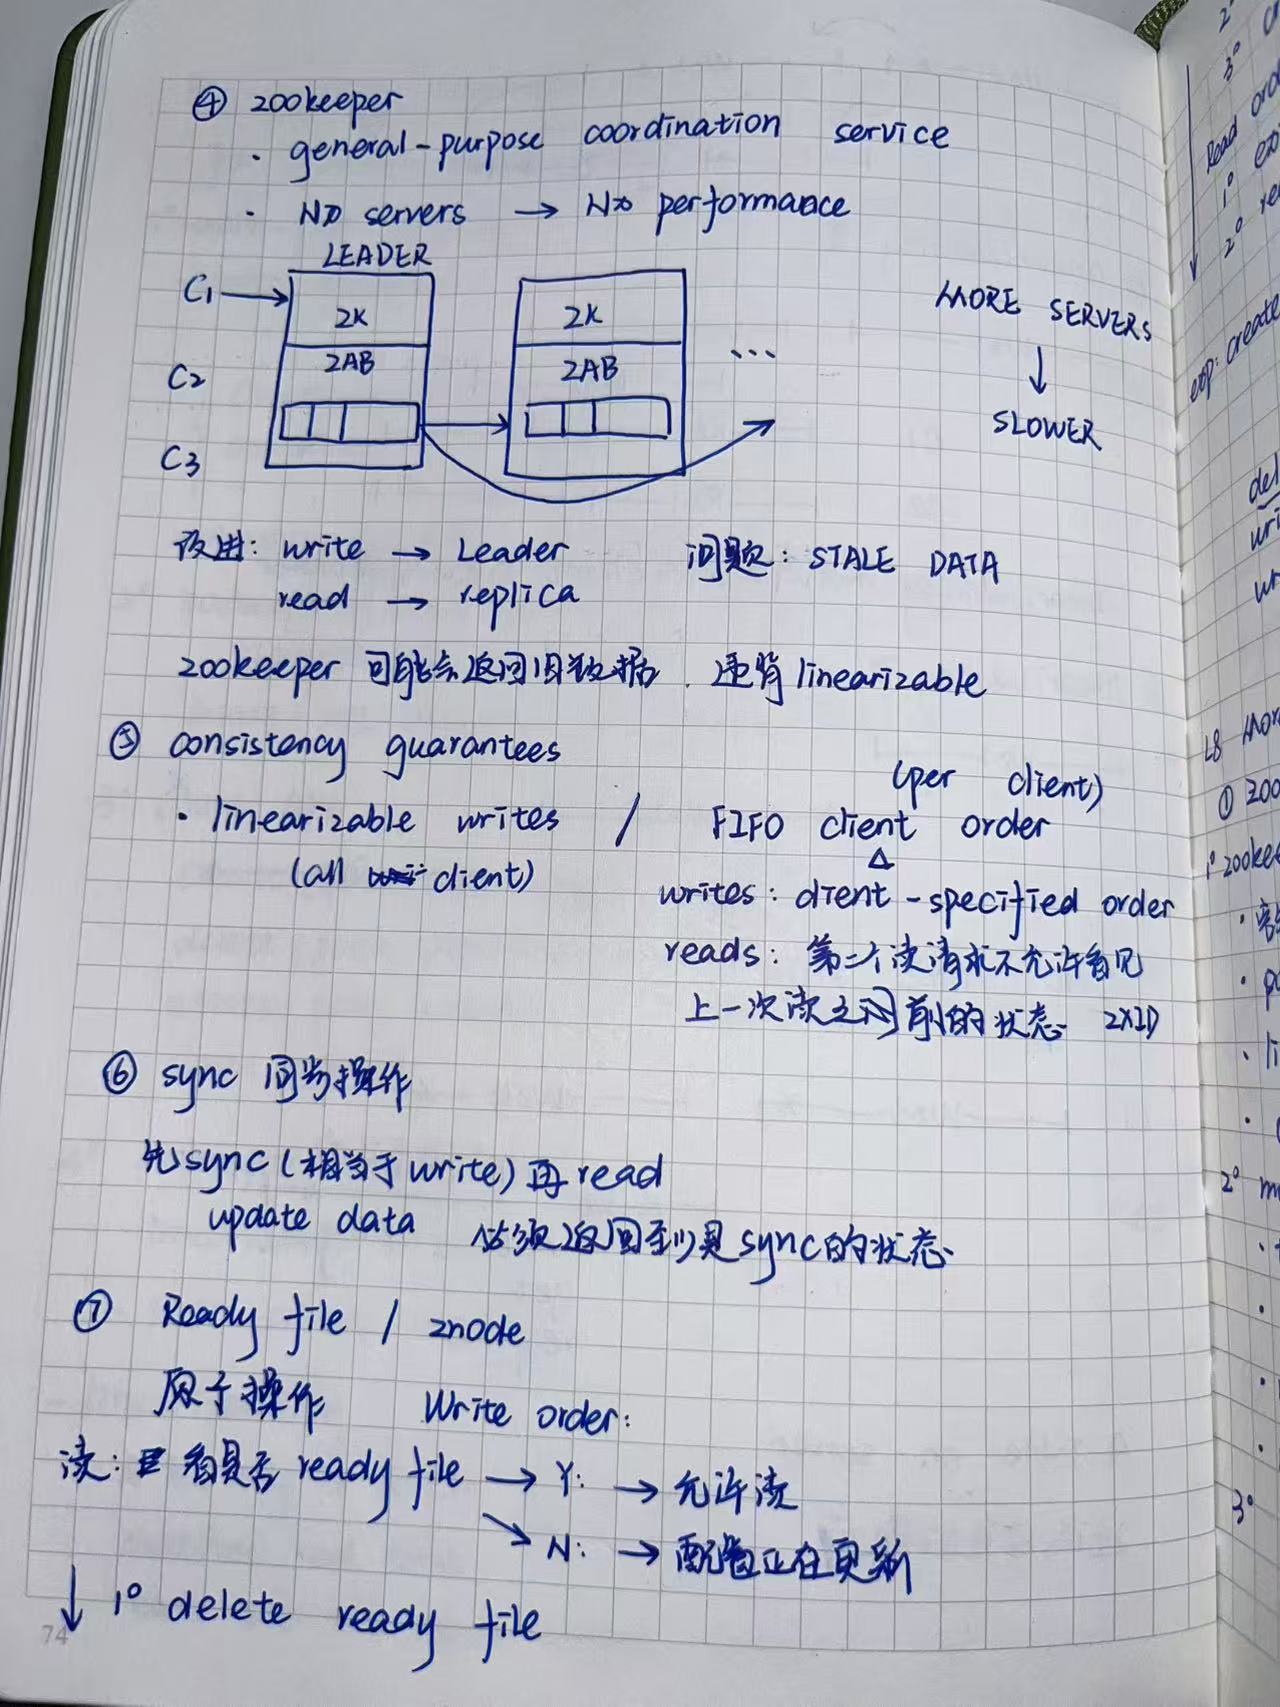 ④ zookeeper
· general-purpose coordination service
· N倍 servers → N倍 performance
LEADER
C1
ZK
ZK
MORE SERVERS
↓
SLOWER
C2
ZAB
ZAB
...
C3
改进: write → Leader
read → replica
问题: STALE DATA
zookeeper 可能会返回旧数据. 违背 linearizable
⑤ consistency guarantees
· linearizable writes / FIFO client order
(all client)
(per client)
writes: client-specified order
reads: 第二个读请求不允许看见
上一次读之前的状态 ZXID
⑥ sync 同步操作
先 sync (相当于 write) 再 read
update data 必须返回到具sync的状态
⑦ Ready file / znode
原子操作 Write order:
读: 看是否 ready file → Y: → 允许读
↘ N: → 配置正在更新
↓ 1° delete ready file
74
2°
3°
Read
1°
2° re
exp: create
del
wri
wr
L8 mor
① zoo
1° zookee
·
· po
· li
·
2° m
3°